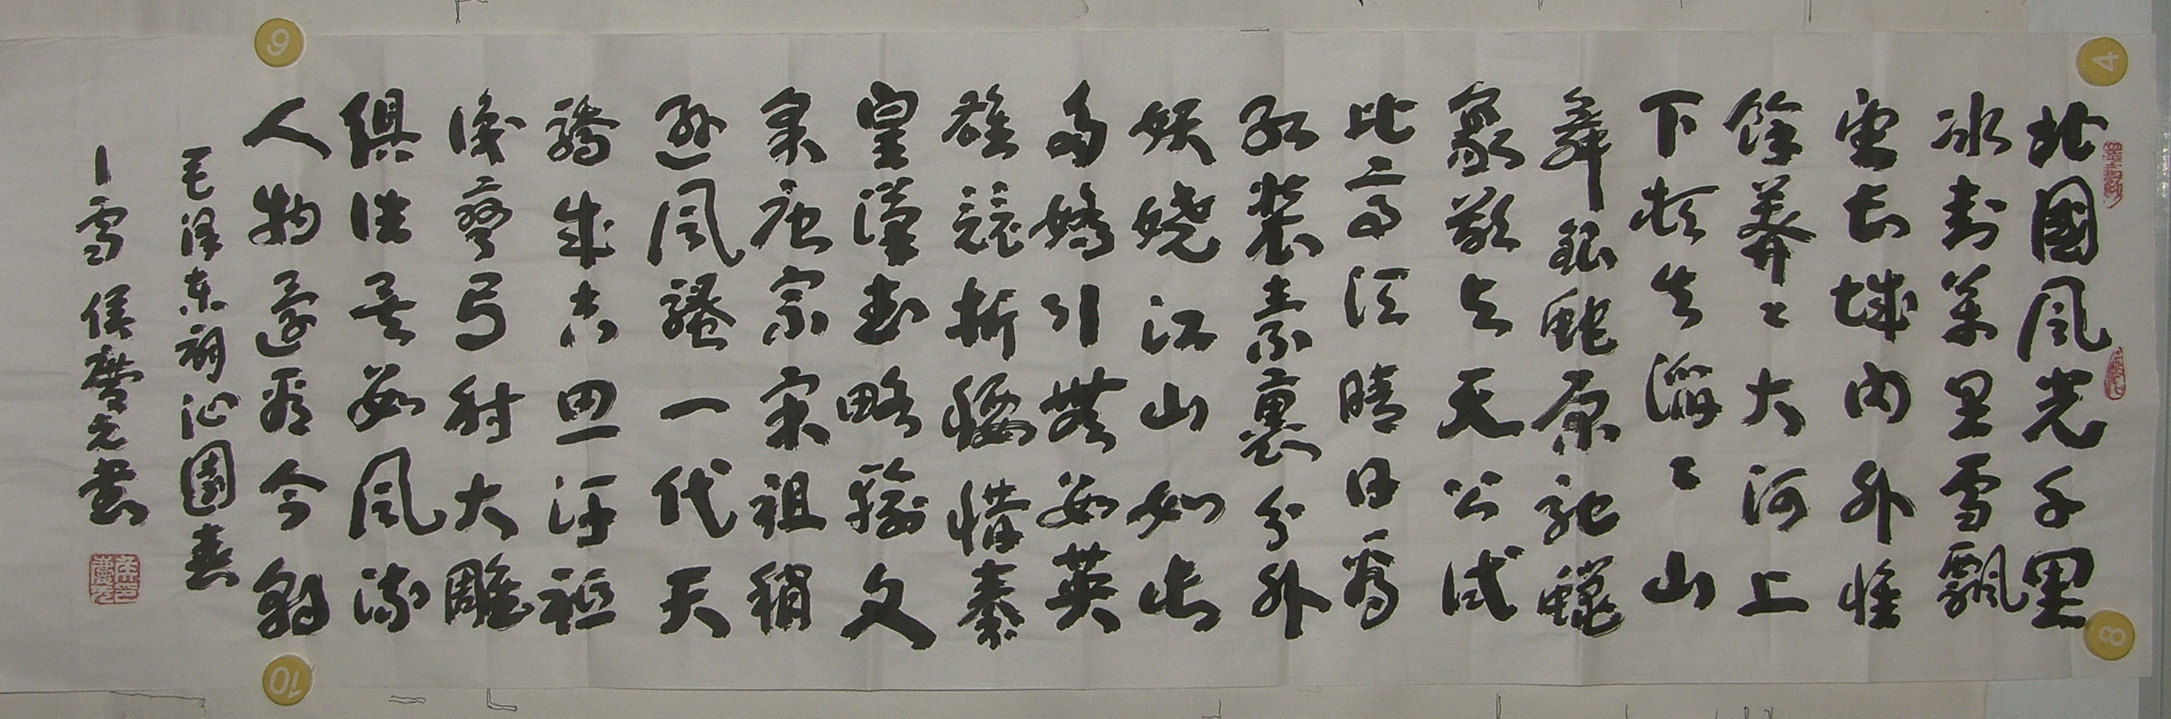 北國風光千里
冰封萬里雪飄
望长城内外惟
餘莽〻大河上
下頓失滔〻山
舞銀蛇原馳蠟
象欲与天公試
比高須晴日看
紅裝素裹分外
妖嬈江山如此
多嬌引無數英
雄競折腰惜秦
皇漢武略輸文
采唐宗宋祖稍
遜風騷一代天
驕成吉思汗祗
識彎弓射大雕
俱往矣數風流
人物還看今朝
毛澤東詞沁園春
—雪 侯慶元書
9
4
10
8